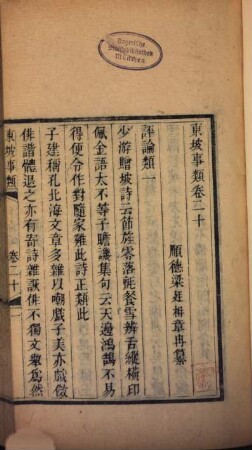 Bayerische
Staatsbibliothek
München
東坡事類卷二十
順德梁廷枏章冉纂
評論類一
少游贈坡詩云節旄零落氈餐雪辨舌縱橫印
佩金語太不等子瞻讓集句云天邊鴻鵠不易
得便令作對隨家雞此詩正類此
子建稱孔北海文章多雜以嘲戲子美亦戲傚
俳諧體退之亦有寄詩雜詼俳不獨文舉爲然
東坡事類
卷二十
一